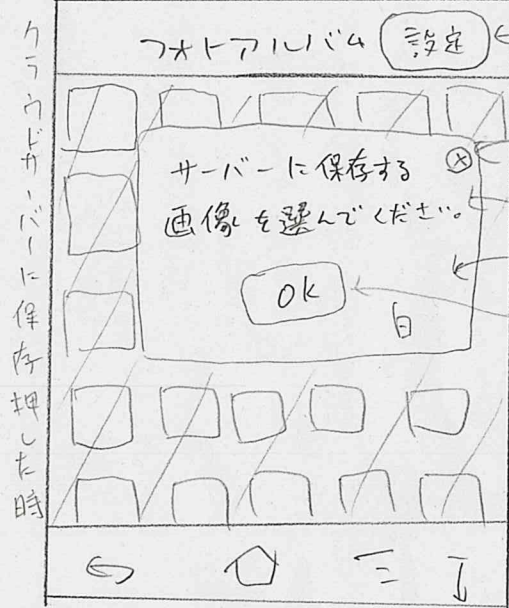 クラウドサーバーに保存押した時
フォトアルバム 設定
サーバーに保存する
画像を選んでください。
OK
白